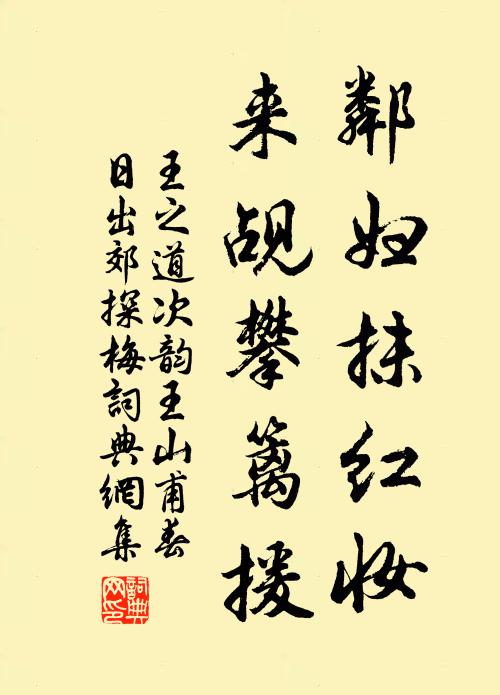 鄰妇抹红妆
来觇攀篱援
王之道次韵王山甫春
日出郊探梅詞典網集
詞典网印